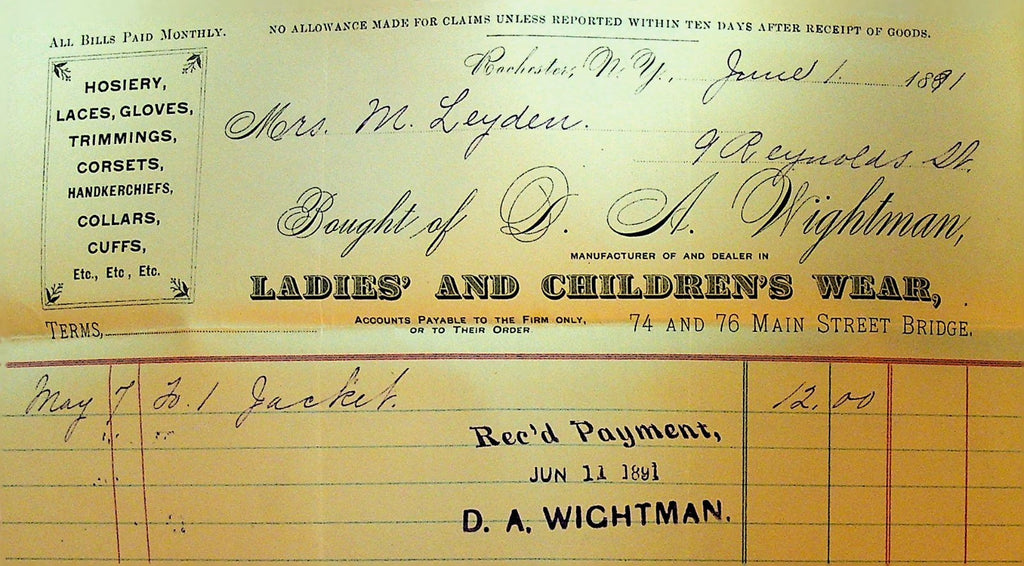 ALL BILLS PAID MONTHLY.
NO ALLOWANCE MADE FOR CLAIMS UNLESS REPORTED WITHIN TEN DAYS AFTER RECEIPT OF GOODS.
HOSIERY,
LACES, GLOVES,
TRIMMINGS,
CORSETS,
HANDKERCHIEFS,
COLLARS,
CUFFS,
Etc., Etc, Etc.
Rochester, N. Y., June 1. 1891
Mrs. M. Leyden.
9 Reynolds St.
Bought of D. A. Wightman,
MANUFACTURER OF AND DEALER IN
LADIES' AND CHILDREN'S WEAR,
TERMS,
ACCOUNTS PAYABLE TO THE FIRM ONLY,
OR TO THEIR ORDER
74 AND 76 MAIN STREET BRIDGE.
May 7 To 1 Jacket. 12.00
Rec'd Payment,
JUN 11 1891
D. A. WIGHTMAN.